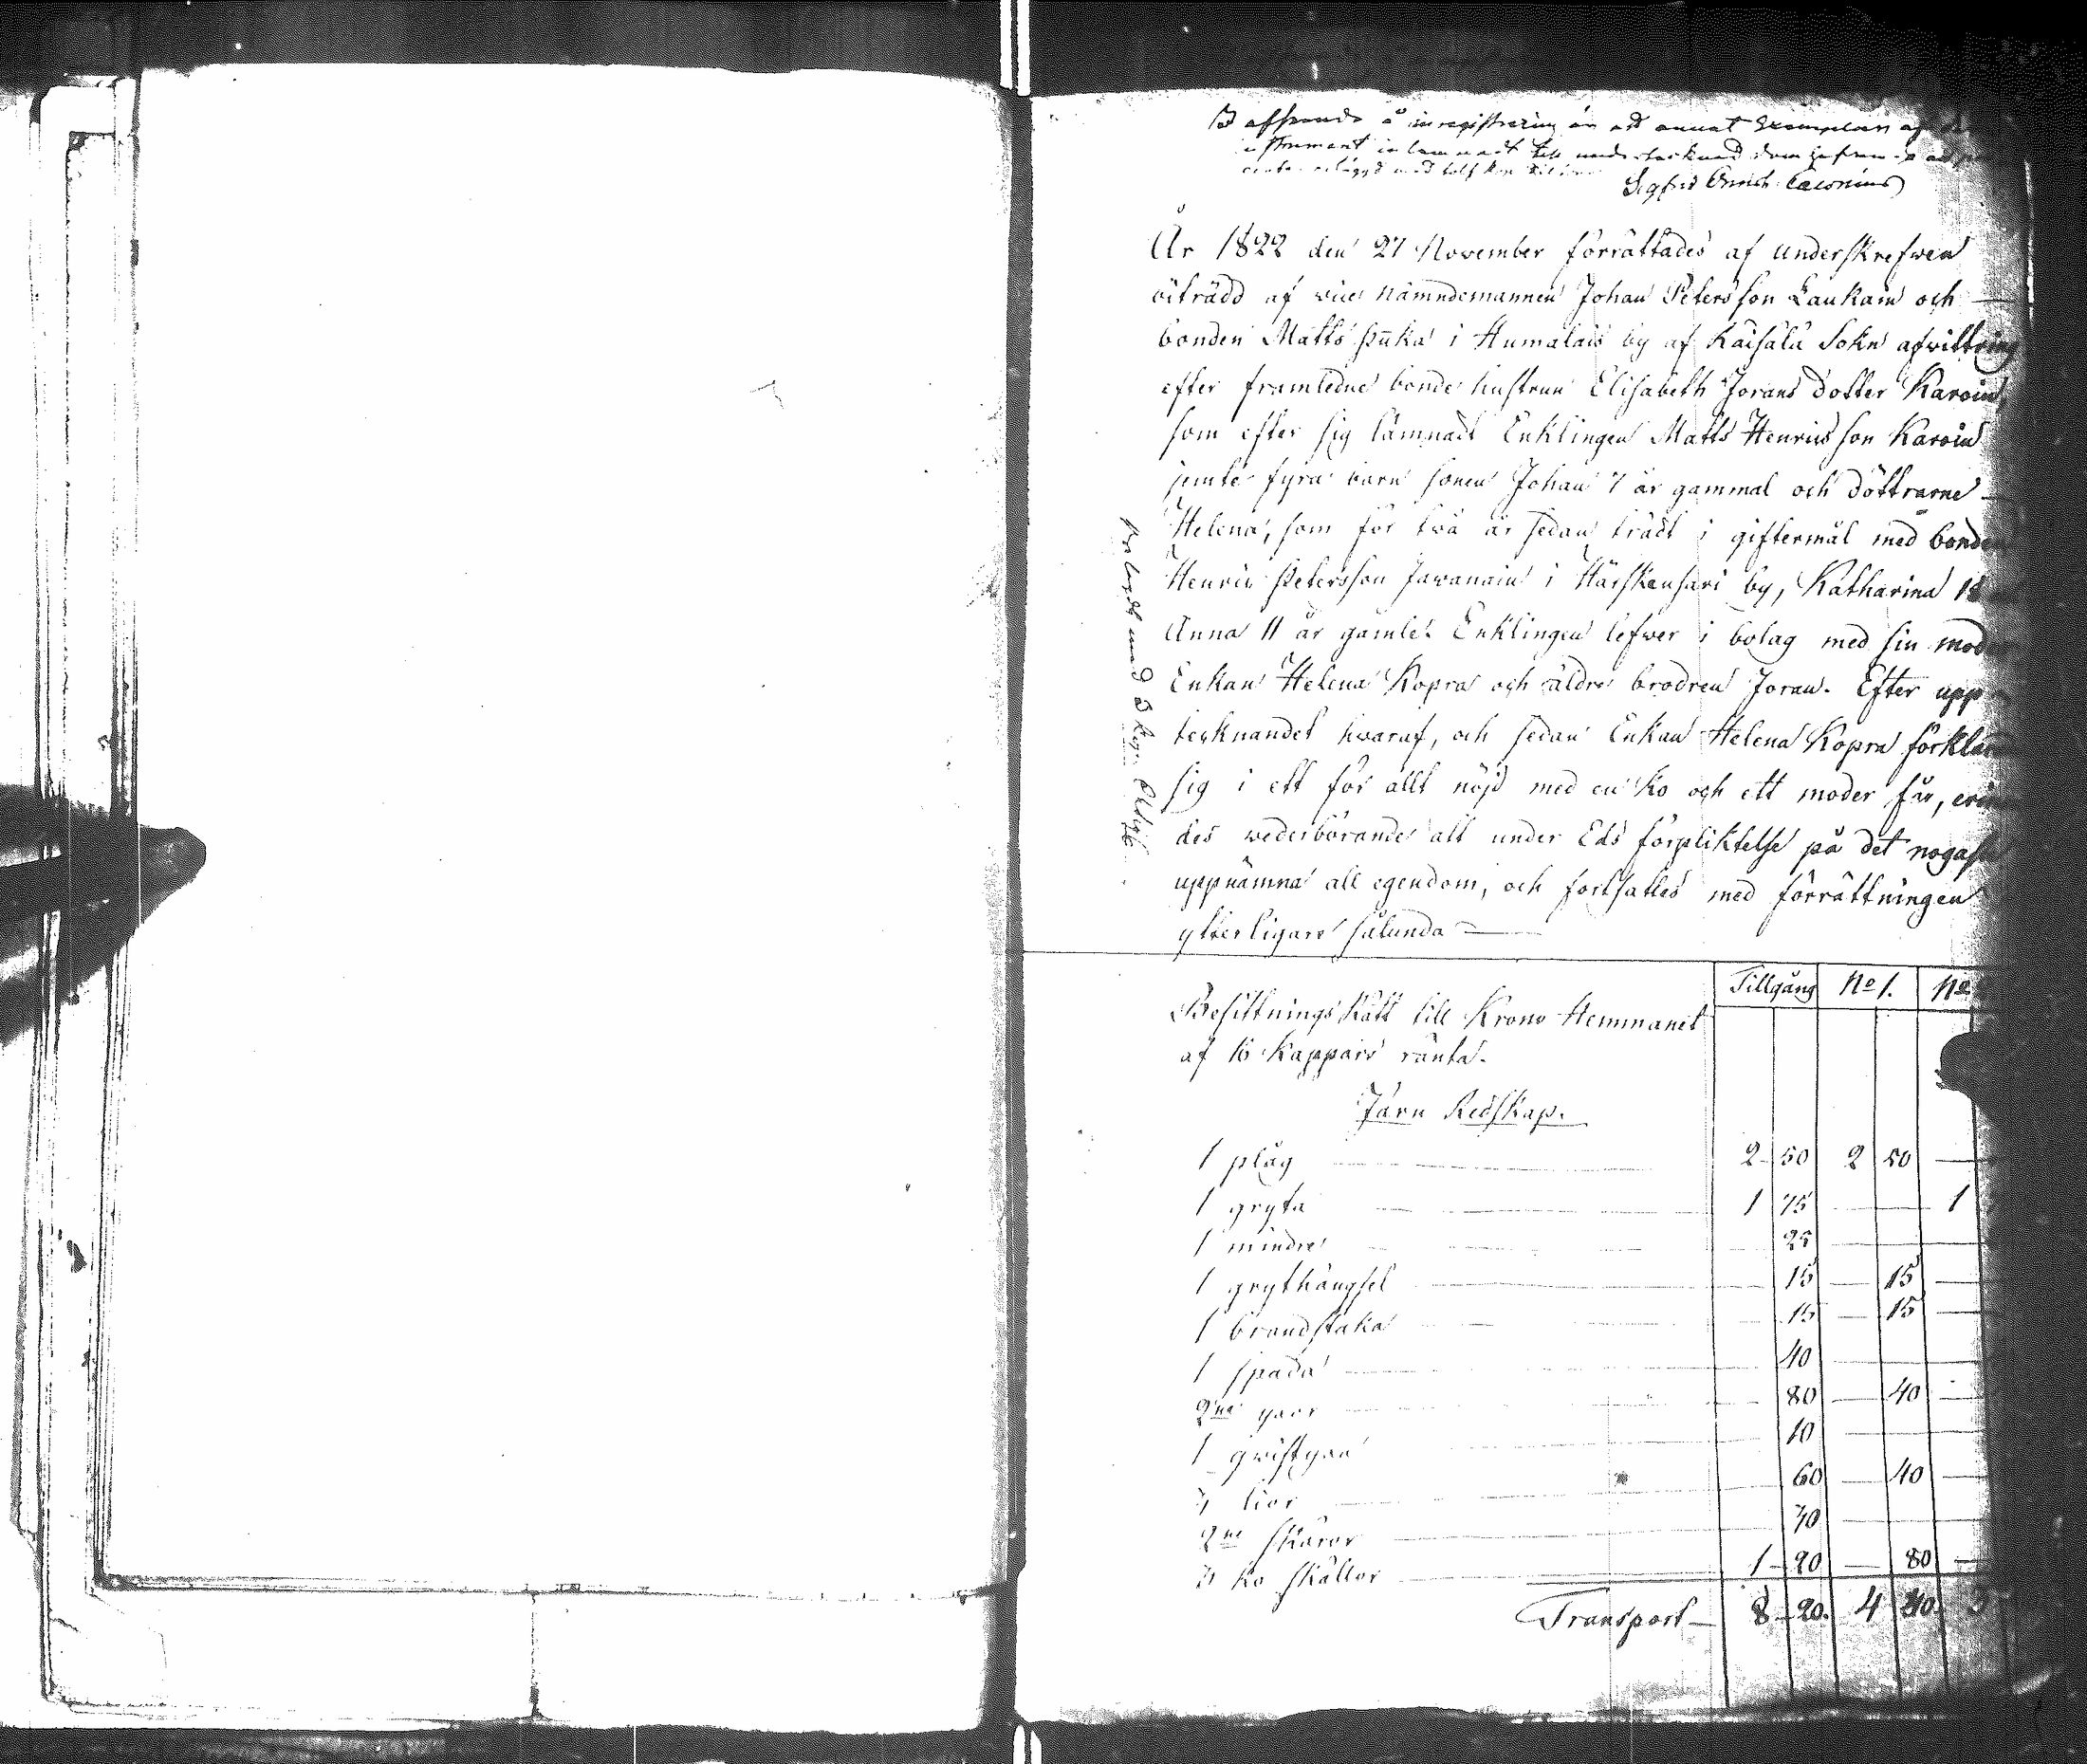 I afseende å inregistrering är ett annat Exemplar af
instrument inlämnadt till undertecknad
med tolf kop
Sigfrid Calonius
År 1822 den 27 November förrättades af underskrefwen
biträdd af vice nämndemannen Johan Petersson Laukain och
bonden Matts Puka i Humalais by af Kaisala Sokn afwittring
efter framledne bonde hustrun Elisabeth Jorans dotter Karoin
som efter sig lämnadt Enklingen Matts Henricsson Karoin
jemte fyra barn sonen Johan 7 år gammal och döttrarne
Helena, som för två år sedan trädt i giftermål med bonden
Henric Petersson Jawanain i Härskensari by, Katharina 18
Anna 11 år gamle. Enklingen lefwer i bolag med sin moder
Enkan Helena Kopra och äldre brodren Joran. Efter upp
tecknandet hwaraf, och sedan Enkan Helena Kopra förklarat
sig i ett för allt nöjd med en ko och ett moder får,
des wederbörande att under Eds förpliktelse på det nogaste
uppnämna all egendom, och fortsattes med förrättningen
ytterligare sålunda
Belagdt med
Tillgång No 1. No
Besittnings Rätt till Krono Hemmanet
af 16 Kappars ränta.
Järn Redskap.
1 plåg 2 50 2 50
1 gryta 1 75 1
1 mindre 25
1 grythängsel 15 15
1 brandstaka 15 15
1 spada 40
2ne yxor 80 40
1 qwistyxa 10
3 lior 60 40
2ne skäror
3 ko skällor 1 20 80
Transport 8 20. 4 40.